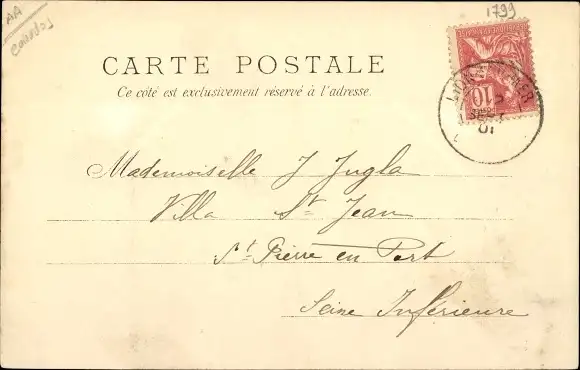 AA
1799
CARTE POSTALE
Ce côté est exclusivement réservé à l'adresse.
10
01
Mademoiselle J Jugla
Villa St Jean
St Pierre en Port
Seine Inférieure